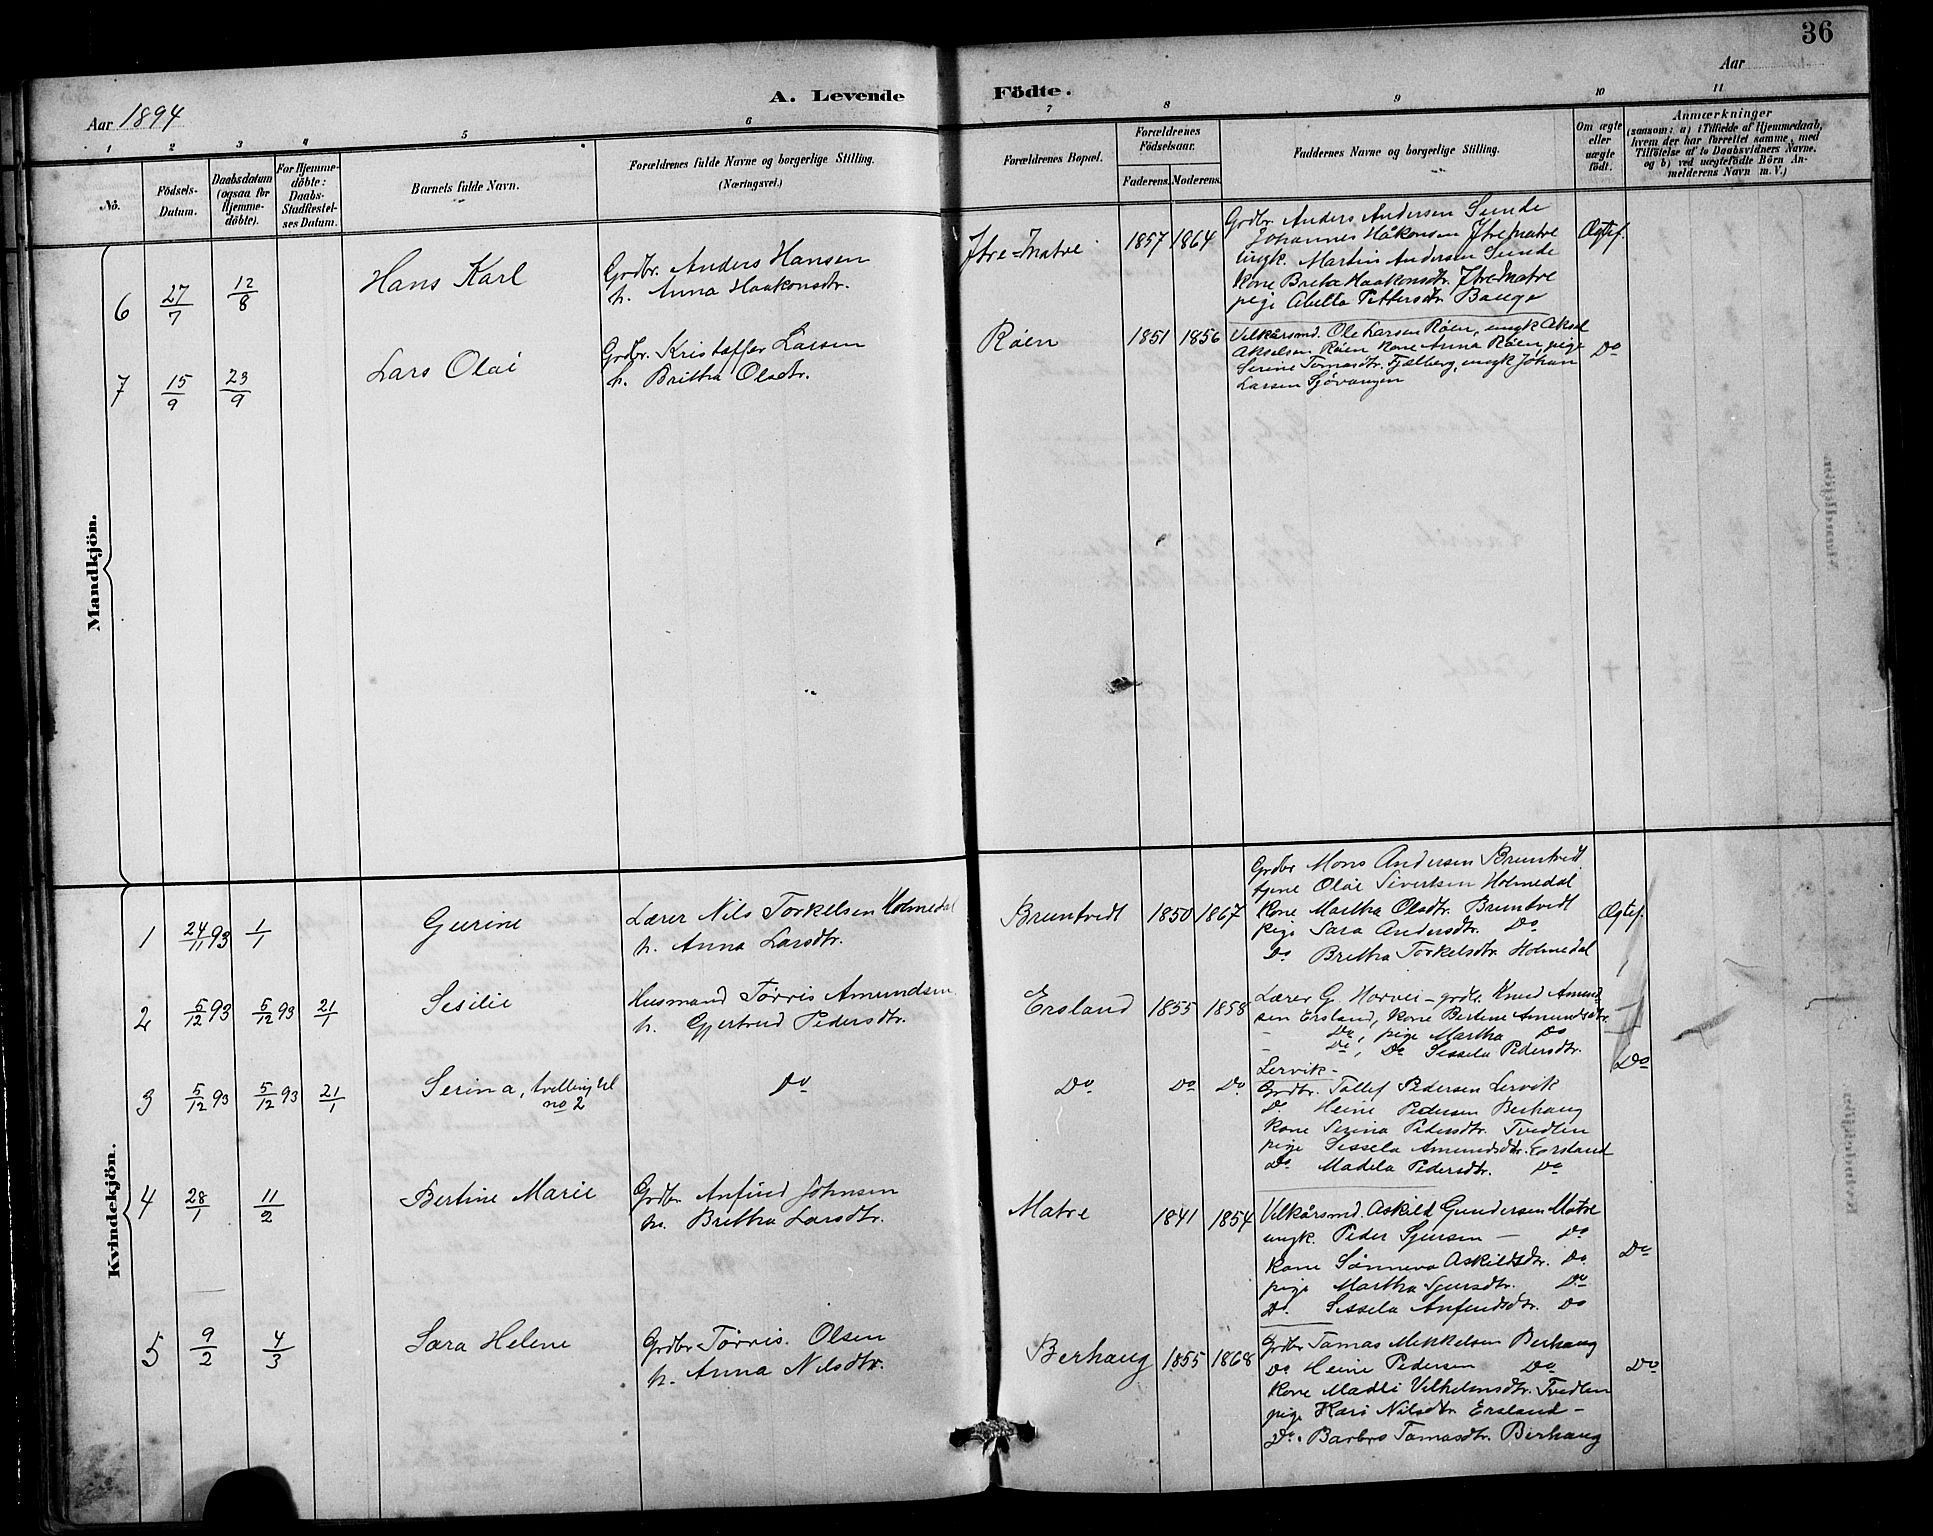 36
Aar 1894
A. Levende Födte.
Aar
1 2 3 4 5 6 7 8 9 10 11
No.
Födsels-
Datum.
Daabsdatum
(ogsaa for
Hjemme-
döbte).
For Hjemme-
döbte:
Daabs-
Stadfæstel-
ses Datum.
Barnets fulde Navn.
Forældrenes fulde Navne og borgerlige Stilling.
(Næringsvei.)
Forældrenes Bopæl.
Forældrenes
Födselsaar.
Faderens. Moderens.
Faddernes Navne og borgerlige Stilling.
Om ægte
eller
uægte
født.
Anmærkninger
(saasom: a) i Tilfælde af Hjemmedaab,
hvem der har forrettet samme, med
Tilföielse af to Daabsvidners Navne,
og b) ved uægtefödte Börn An-
melderens Navn m. V.)
Mandkjön.
6 27/7 12/8 Hans Karl
Grdbr. Anders Hansen
h. Anna Haakonsdtr.
Ytre-Matre 1857 1864
Grdbr. Anders Andersen Sunde
Johannes Håkonsen Ytre Matre
Ungk. Martin Andersen Sunde
Kone Breta Haakonsdtr. Ytre-Matre
pige Abella Pettersdtr. Bauge
Ægtef.
7 15/9 23/9 Lars Olai
Grdbr. Kristoffer Larsen
h. Britha Olsdtr.
Røen 1851 1856
Velkårsmd. Ole Larsen Røen, ungk Aksel
Akselsen Røen, Kone Anna Røen, pige
Serine Tomasdtr. Fjelberg, ungk Johan
Larsen Sjøvangen
Do
Kvindekjön.
1 24/11 93 1/1 Gurine
Lærer Nils Torkelsen Holmedal
h. Anna Larsdtr.
Bruntvedt 1850 1867
Grdbr Mons Andersen Bruntvedt
tjene Olai Sivertsen Holmedal
Kone Martha Olsdtr. Bruntvedt
Pige Sara Andersdtr. Do
Do Britha Torkelsdtr. Holmedal
Ægtef.
2 5/12 93 5/12 93 21/1 Sesilie
Husmand Tørris Amundsen
h. Gjertrud Pedersdtr.
Ersland 1855 1858
Lærer G. Horvei - grdbr. Knud Amund-
sen Ersland, Kone Bertine Amundsdtr.
- Do, pige Martha Do
- Do, Do Sissela Pedersdtr.
Lervik -
Do
3 5/12 93 5/12 93 21/1 Serina, tvilling til
no 2
Do
Do Do Do
Grdbr. Tollef Pedersen Lervik
Do. Heine Pedersen Berhaug
Kone Serina Pedersdtr. Tvedten
pige Sissela Amundsdtr. Ersland
Do. Madela Pedersdtr. Do
4 28/1 11/2 Bertine Marie
Grdbr. Anfind Johnsen
h. Britha Larsdtr.
Matre 1841 1854
Velkårsmd. Askild Gundersen Matre
ungk. Peder Sjursen - Do
Kone Sønneva Askildsdtr. Do
pige Martha Sjursdtr. Do
Do. Sissela Anfindsdtr. Do
Do
5 9/2 4/3 Sara Helene
Grdbr Tørris. Olsen
h. Anna Nilsdtr.
Berhaug 1855 1868
Grdbr Tamas Mikkelsen Berhaug
Do Heine Pedersen Do
Kone Madli Vilhelmsdtr. Tvedten
pige Kari Nilsdtr Ersland -
Do. Barbro Tamasdtr. Berhaug
Do